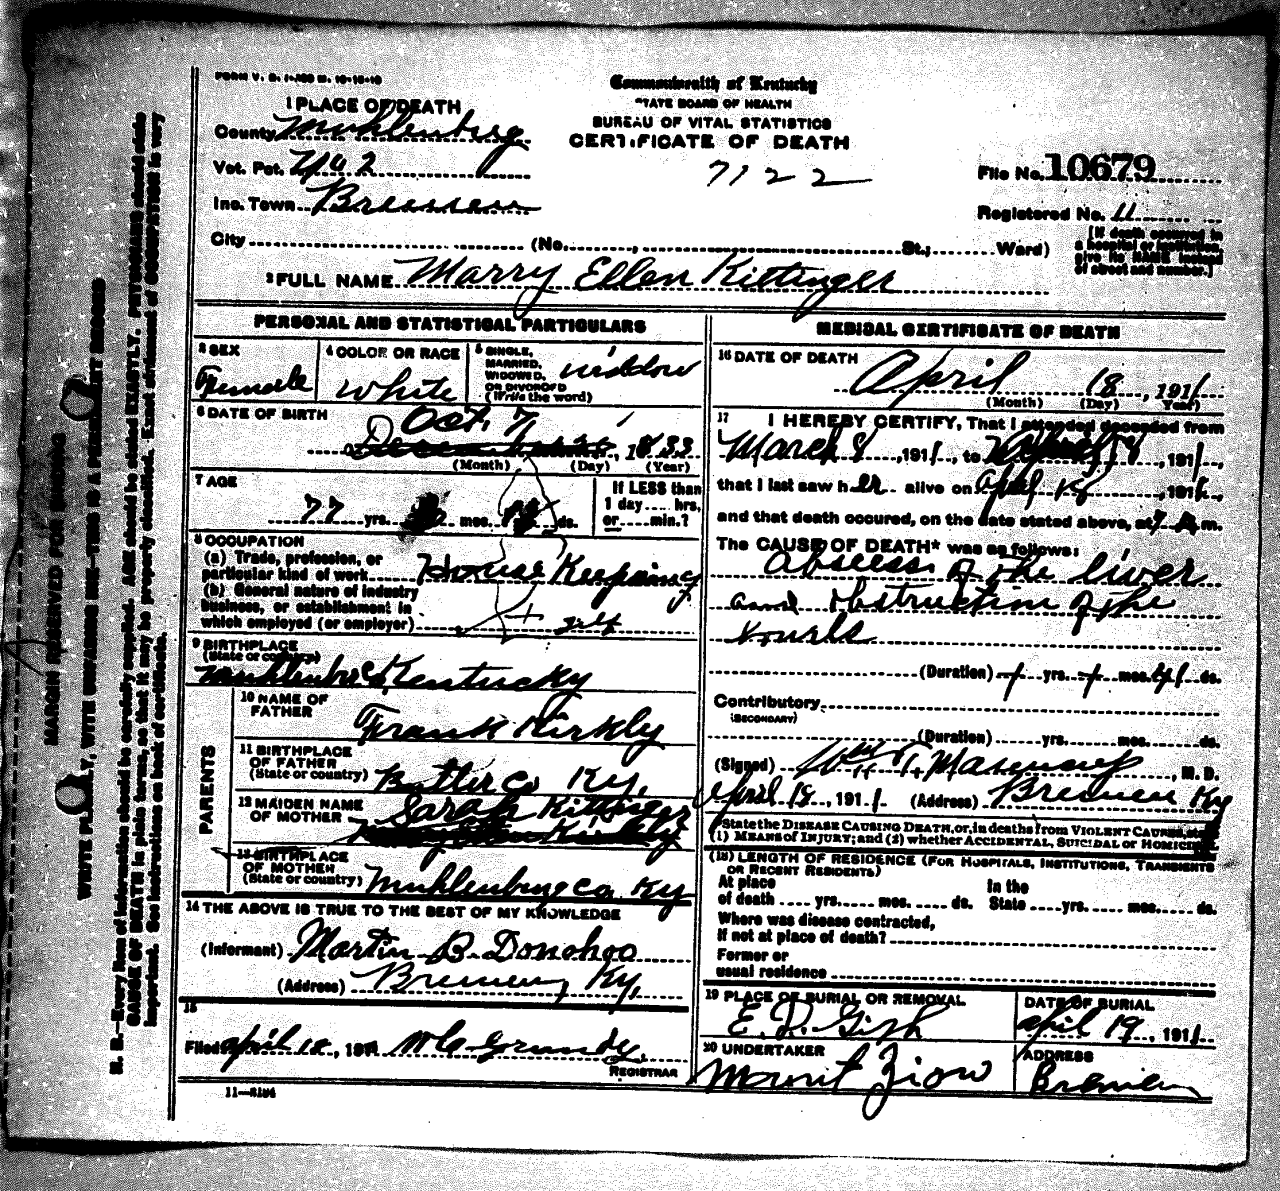 FORM V. S. 1-
Commonwealth of Kentucky
STATE BOARD OF HEALTH
BUREAU OF VITAL STATISTICS
CERTIFICATE OF DEATH
7122
1 PLACE OF DEATH
County Muhlenberg
Vot. Pct. 7142
Inc. Town Bremen
File No. 10679
Registered No. 11
City (No. , St.; Ward)
[If death occurred in
a hospital or institution,
give its NAME instead
of street and number.]
2 FULL NAME Marry Ellen Kittinger
PERSONAL AND STATISTICAL PARTICULARS
3 SEX
Female
4 COLOR OR RACE
White
5 SINGLE,
MARRIED,
WIDOWED,
OR DIVORCED
(Write the word)
widdow
6 DATE OF BIRTH
Oct. 7
, 1833
(Month) (Day) (Year)
7 AGE
77 yrs. mos. ds.
If LESS than
1 day.... hrs.
or.....min.?
8 OCCUPATION
(a) Trade, profession, or
particular kind of work House Keepaing
(b) General nature of industry
business, or establishment in
which employed (or employer) self
9 BIRTHPLACE
(State or country)
Muhlenburg Kentucky
PARENTS
10 NAME OF
FATHER
Frank Kirkly
11 BIRTHPLACE
OF FATHER
(State or country)
Butler Co Ky.
12 MAIDEN NAME
OF MOTHER
Sarah Kittinger
13 BIRTHPLACE
OF MOTHER
(State or country) Muhlenburg Co. Ky
14 THE ABOVE IS TRUE TO THE BEST OF MY KNOWLEDGE
(Informant) Martin B. Donohoo
(Address) Bremen, Ky.
15
Filed April 18, 191 W C Grundy.
REGISTRAR
11-
MEDICAL CERTIFICATE OF DEATH
16 DATE OF DEATH
April 18, 1911
(Month) (Day) Year)
17 I HEREBY CERTIFY, That I attended deceased from
March 8, 1911, to April 18, 1911,
that I last saw her alive on Apl 18, 1911,
and that death occured, on the date stated above, at 7 A m.
The CAUSE OF DEATH* was as follows:
Abscess of the liver
and obstruction of the
bowels
(Duration) yrs. mos. 41 ds.
Contributory
(SECONDARY)
(Duration) yrs. mos. ds.
(Signed) , M. D.
April 18, 1911 (Address) Bremen Ky
*State the DISEASE CAUSING DEATH, or, in deaths from VIOLENT CAUSES, state
(1) MEANS OF INJURY; and (2) whether ACCIDENTAL, SUICIDAL or HOMICIDAL
(18) LENGTH OF RESIDENCE (FOR HOSPITALS, INSTITUTIONS, TRANSIENTS
OR RECENT RESIDENTS)
At place In the
of death yrs. mos. ds. State yrs. mos. ds.
Where was disease contracted,
If not at place of death?
Former or
usual residence
19 PLACE OF BURIAL OR REMOVAL
E. D. Gish
DATE OF BURIAL
April 19, 1911
20 UNDERTAKER
Mount Zion
ADDRESS
Bremen
MARGIN RESERVED FOR BINDING
WRITE PLAINLY, WITH UNFADING INK—THIS IS A PERMANENT RECORD
N. B.—Every item of information should be carefully supplied. AGE should be stated EXACTLY. PHYSICIANS should state
CAUSE OF DEATH in plain terms, so that it may be properly classified. Exact statement of OCCUPATION is very
important. See instructions on back of certificate.